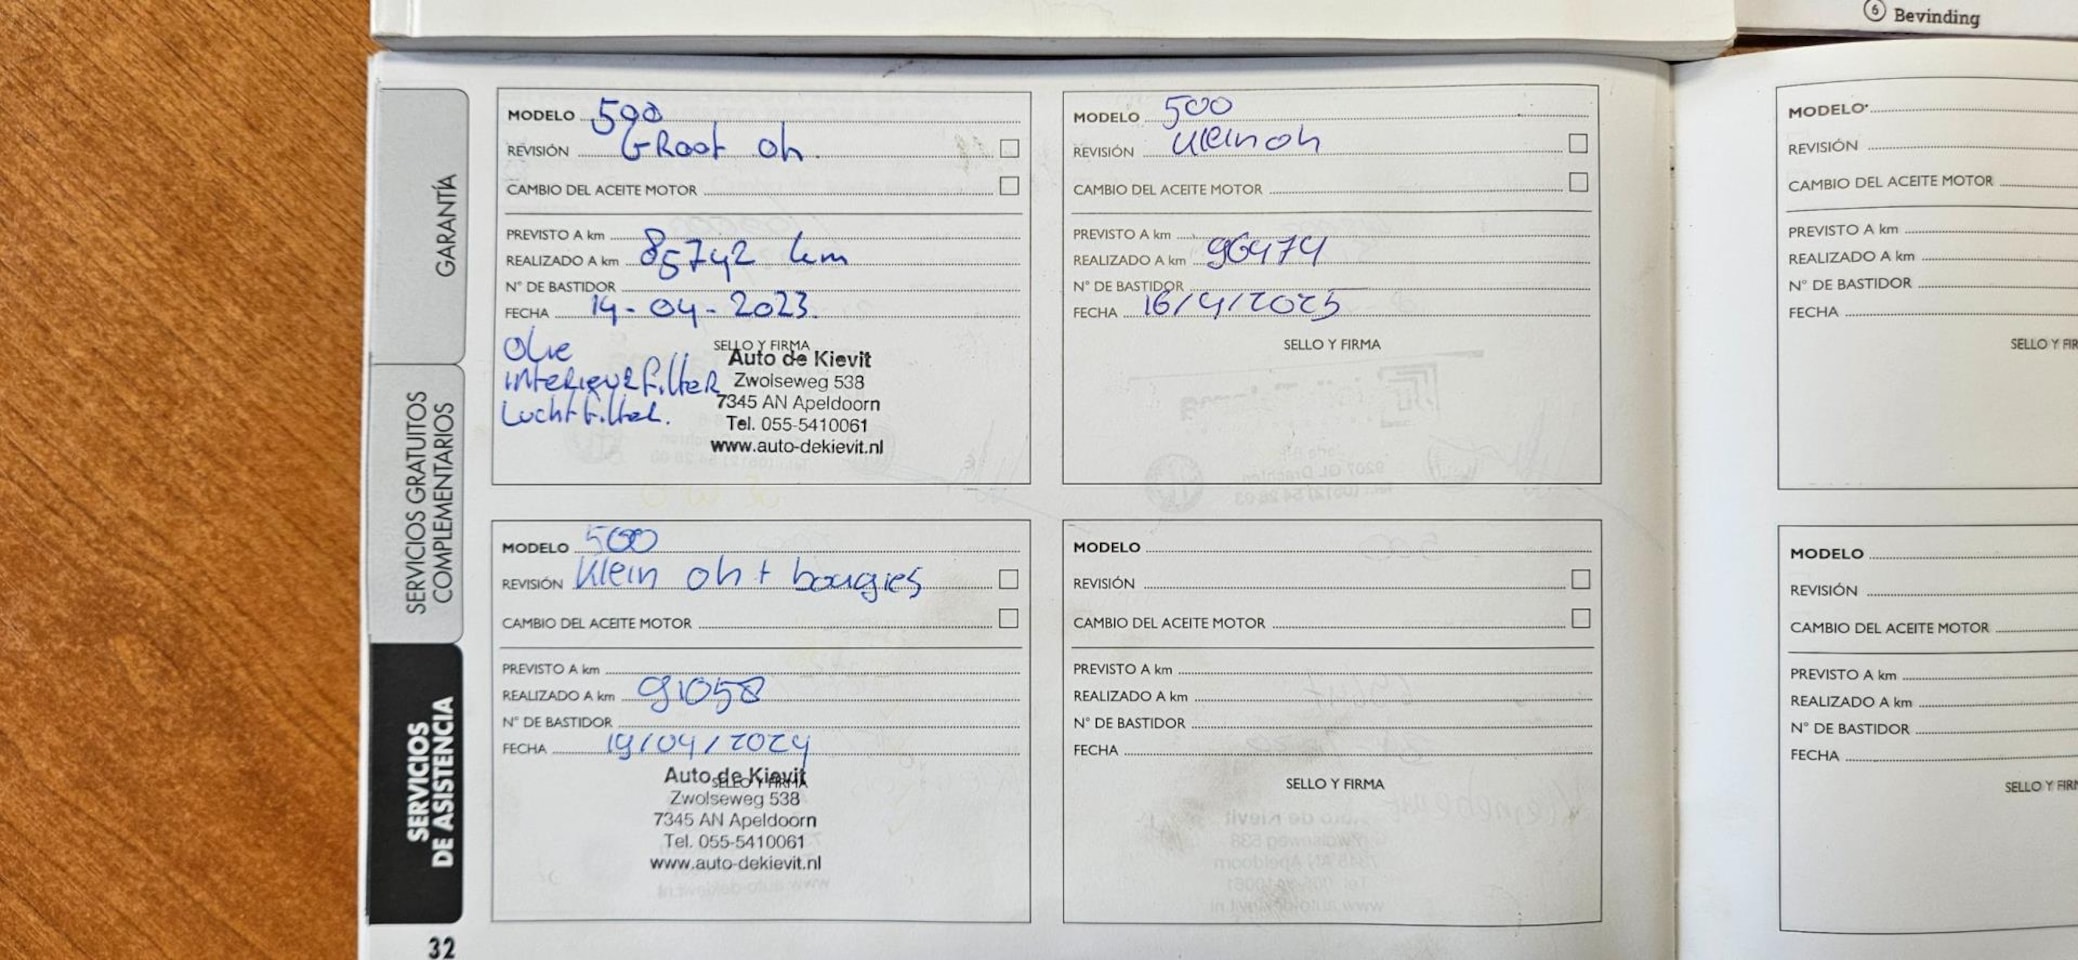 6 Bevinding
GARANTÍA
SERVICIOS GRATUITOS
COMPLEMENTARIOS
SERVICIOS
DE ASISTENCIA
32
MODELO 500
REVISIÓN GRoot oh.
CAMBIO DEL ACEITE MOTOR
PREVISTO A km
REALIZADO A km 85742 km
N° DE BASTIDOR
FECHA 14-04-2023.
SELLO Y FIRMA
Olie
interieurfilter
Luchtfilter.
Auto de Kievit
Zwolseweg 538
7345 AN Apeldoorn
Tel. 055-5410061
www.auto-dekievit.nl
MODELO 500
REVISIÓN Klein oh
CAMBIO DEL ACEITE MOTOR
PREVISTO A km
REALIZADO A km 96474
N° DE BASTIDOR
FECHA 16/4/2025
SELLO Y FIRMA
MODELO 500
REVISIÓN Klein oh + bougies
CAMBIO DEL ACEITE MOTOR
PREVISTO A km
REALIZADO A km 91058
N° DE BASTIDOR
FECHA 19/04/2024
SELLO Y FIRMA
Auto de Kievit
Zwolseweg 538
7345 AN Apeldoorn
Tel. 055-5410061
www.auto-dekievit.nl
MODELO
REVISIÓN
CAMBIO DEL ACEITE MOTOR
PREVISTO A km
REALIZADO A km
N° DE BASTIDOR
FECHA
SELLO Y FIRMA
MODELO
REVISIÓN
CAMBIO DEL ACEITE MOTOR
PREVISTO A km
REALIZADO A km
N° DE BASTIDOR
FECHA
SELLO Y FIR
MODELO
REVISIÓN
CAMBIO DEL ACEITE MOTOR
PREVISTO A km
REALIZADO A km
N° DE BASTIDOR
FECHA
SELLO Y FIRM